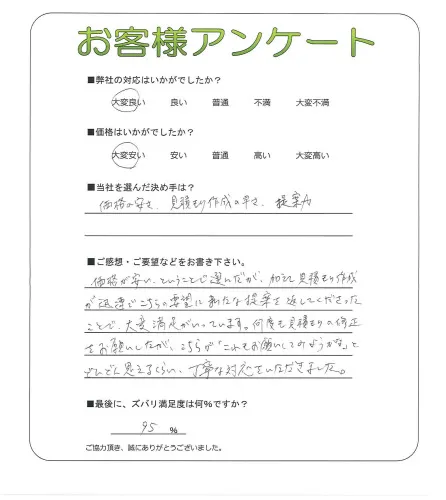 お客様アンケート
■弊社の対応はいかがでしたか？
大変良い 良い 普通 不満 大変不満
■価格はいかがでしたか？
大変安い 安い 普通 高い 大変高い
■当社を選んだ決め手は？
価格の安さ、見積もり作成の早さ、提案力
■ご感想・ご要望などをお書き下さい。
価格が安い、ということで選んだが、加えて見積もり作成
が迅速でこちらの要望に新たな提案を返してくださった
ことで、大変満足がいっています。何度も見積もりの修正
をお願いしたが、こちらが「これもお願いしてみようかな」と
どんどん思えるくらい、丁寧な対応をいただきました。
■最後に、ズバリ満足度は何％ですか？
95 %
ご協力頂き、誠にありがとうございました。